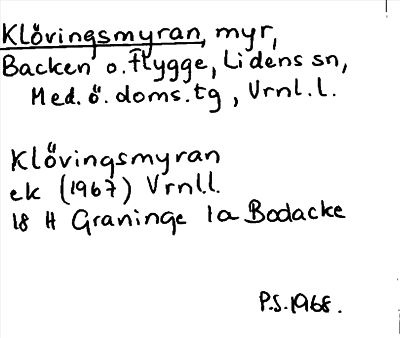 Klövingsmyran, myr,
Backen o. Flygge, Lidens sn,
Med. ö. doms.tg, Vrnl.l.
Klövingsmyran
ek (1967) Vrnl.l.
18 H Graninge 1a Bodacke
P.S. 1968.